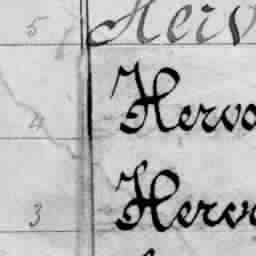 5 Herv
4 Hervo
3 Herve